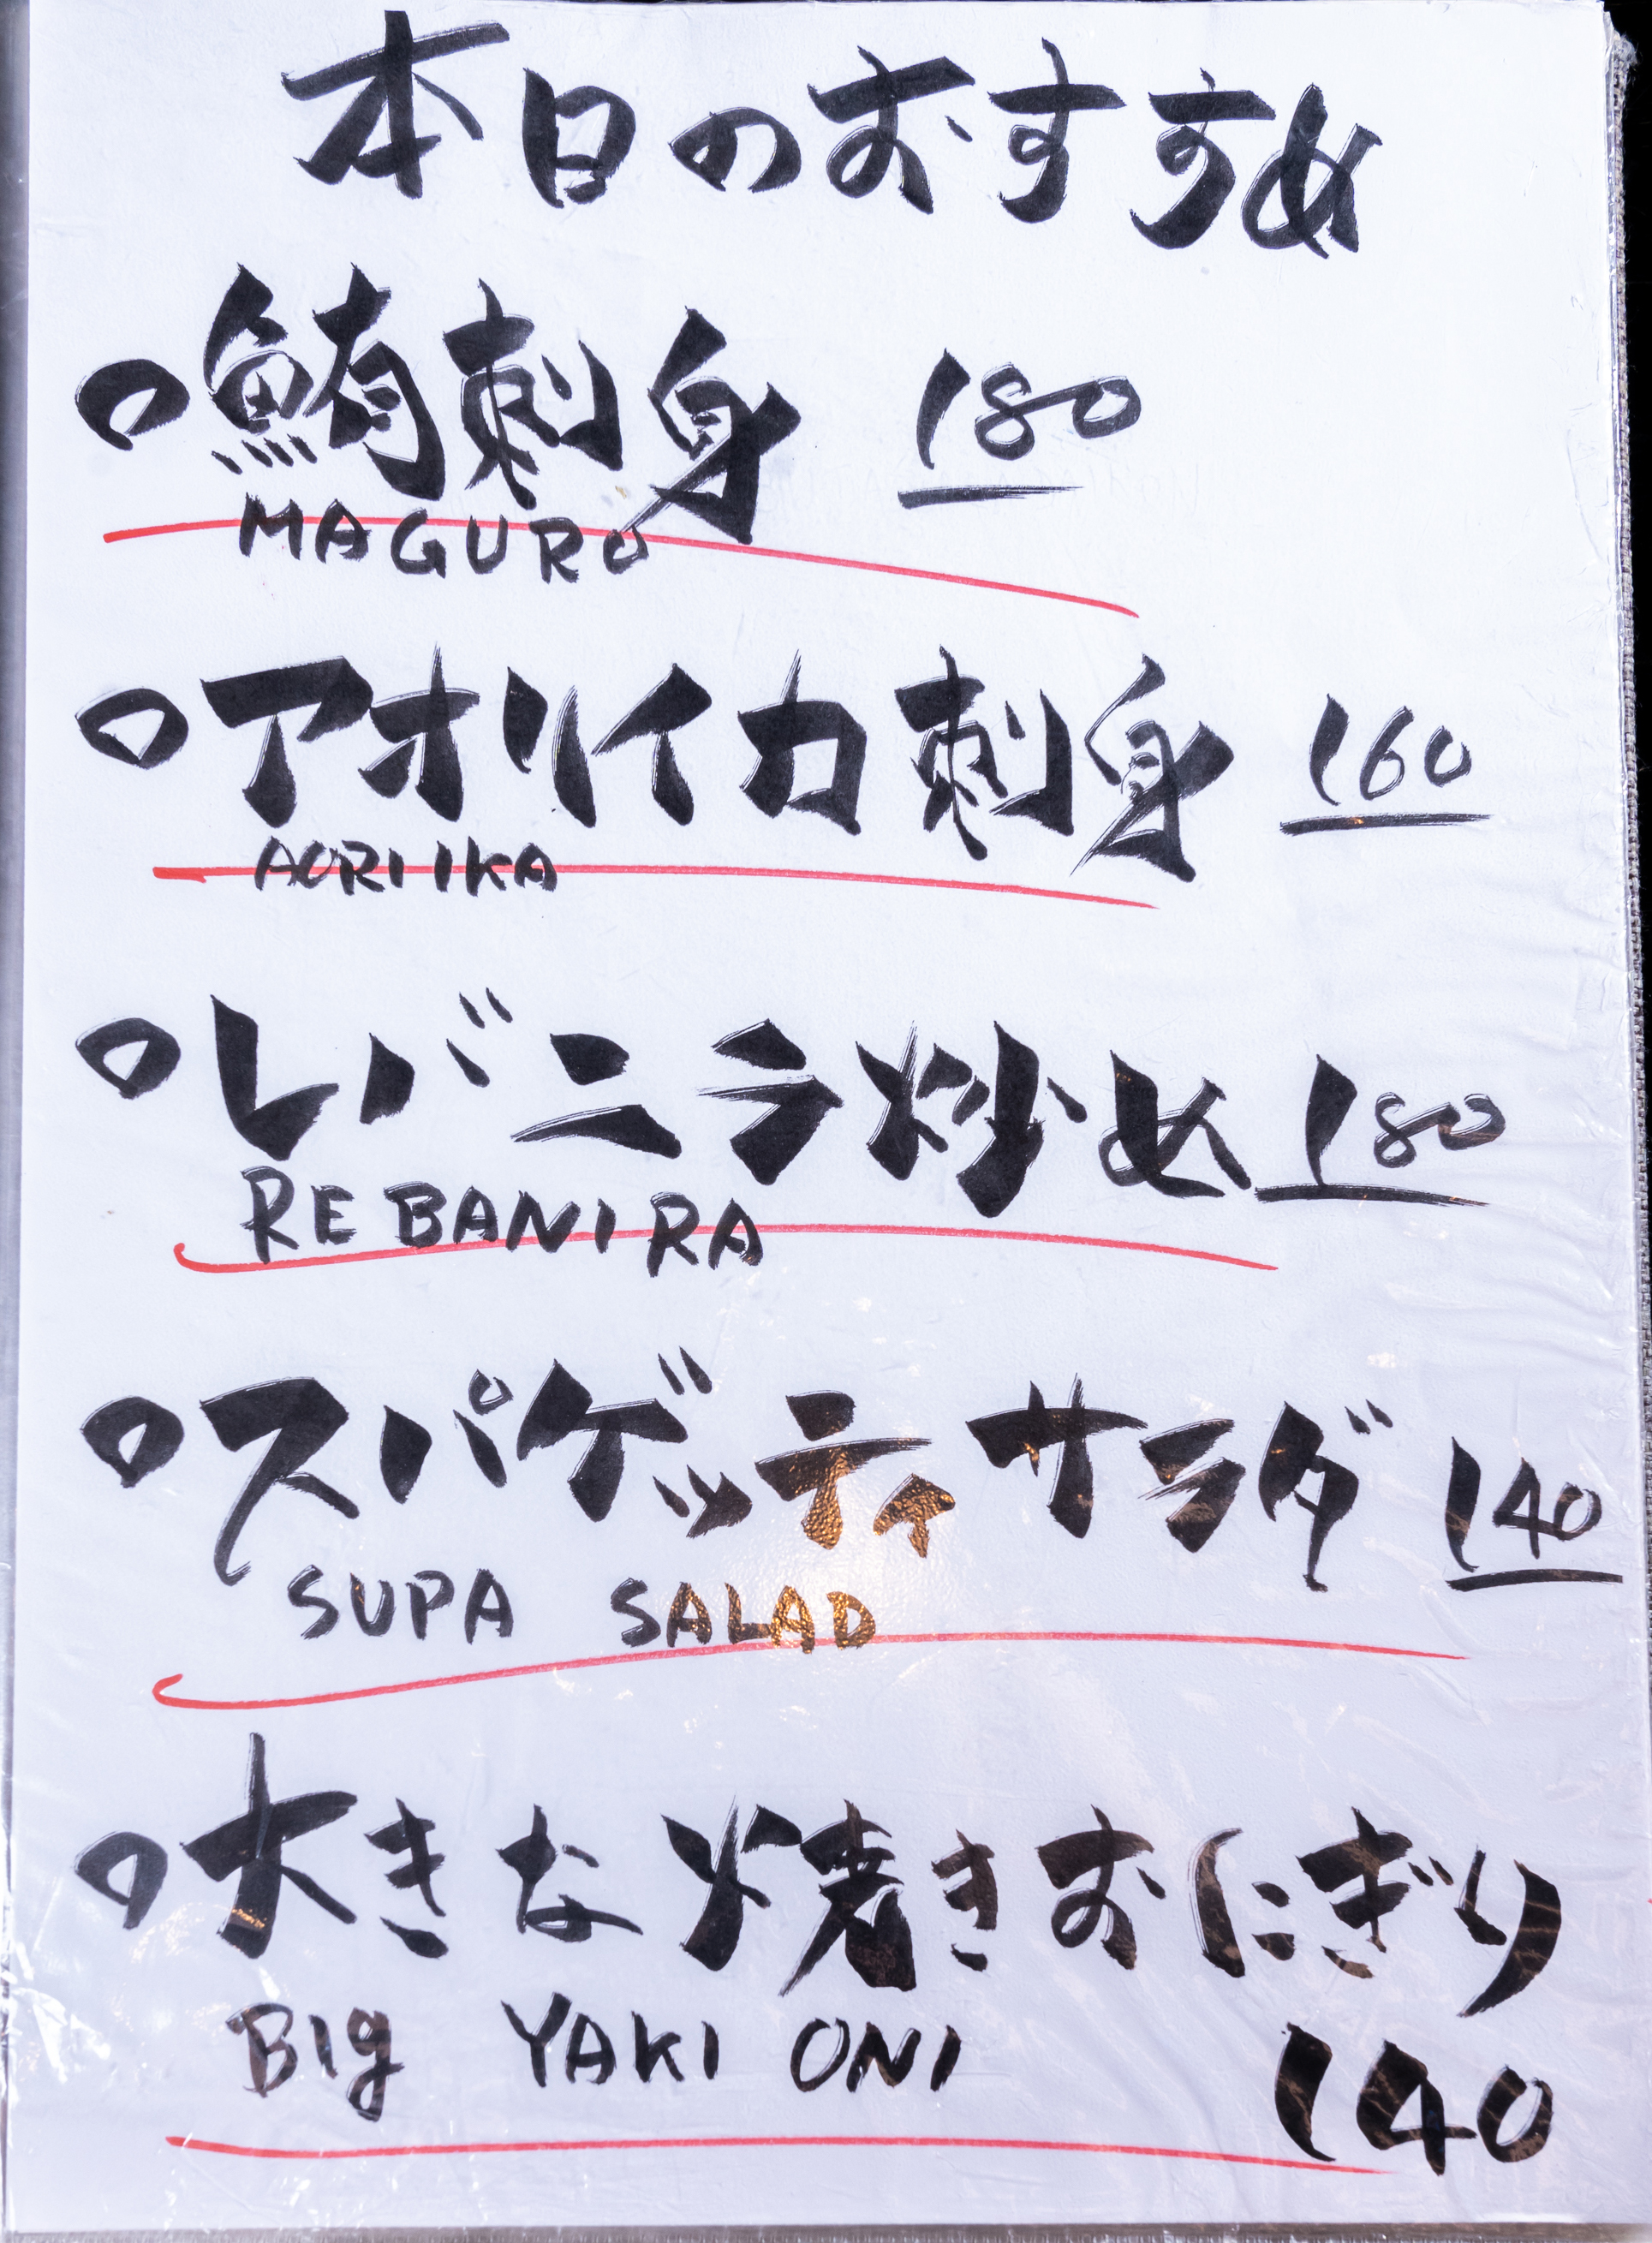 本日のおすすめ
鮪刺身 180
MAGURO
アオリイカ刺身 160
AORIIKA
レバニラ炒め 180
REBANIRA
スパゲッティサラダ 140
SUPA SALAD
大きな焼きおにぎり
Big YAKI ONI 140